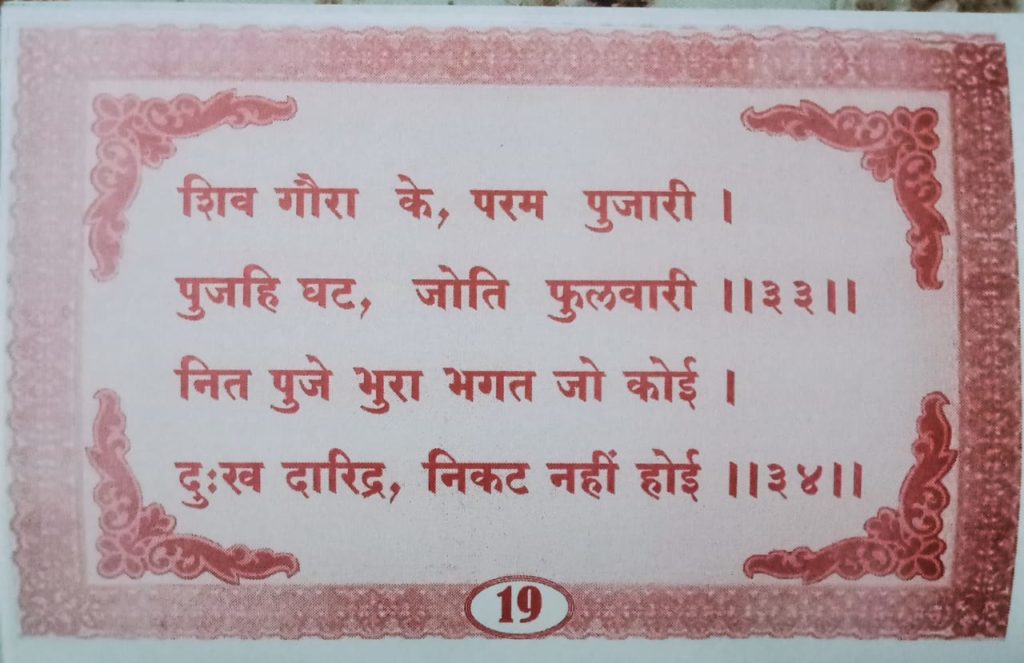 शिव गौरा के, परम पुजारी ।
पुजहि घट, जोति फुलवारी ।।३३।।
नित पुजे भुरा भगत जो कोई ।
दुःख दारिद्र, निकट नहीं होई ।।३४।।
19